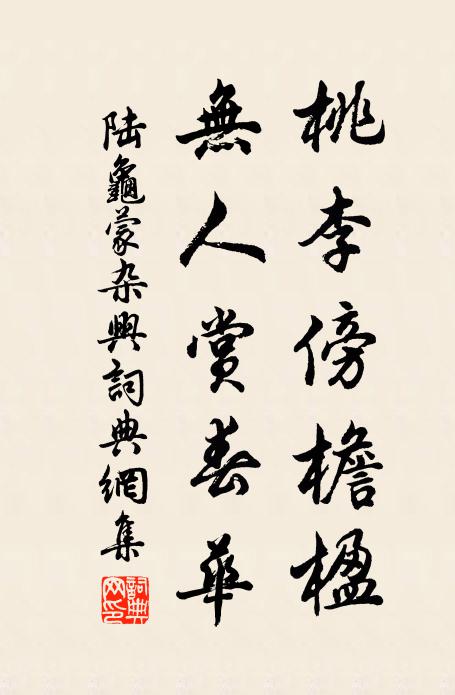 桃李傍檐楹
無人賞春華
陸龜蒙杂興詞典網集
詞典网印